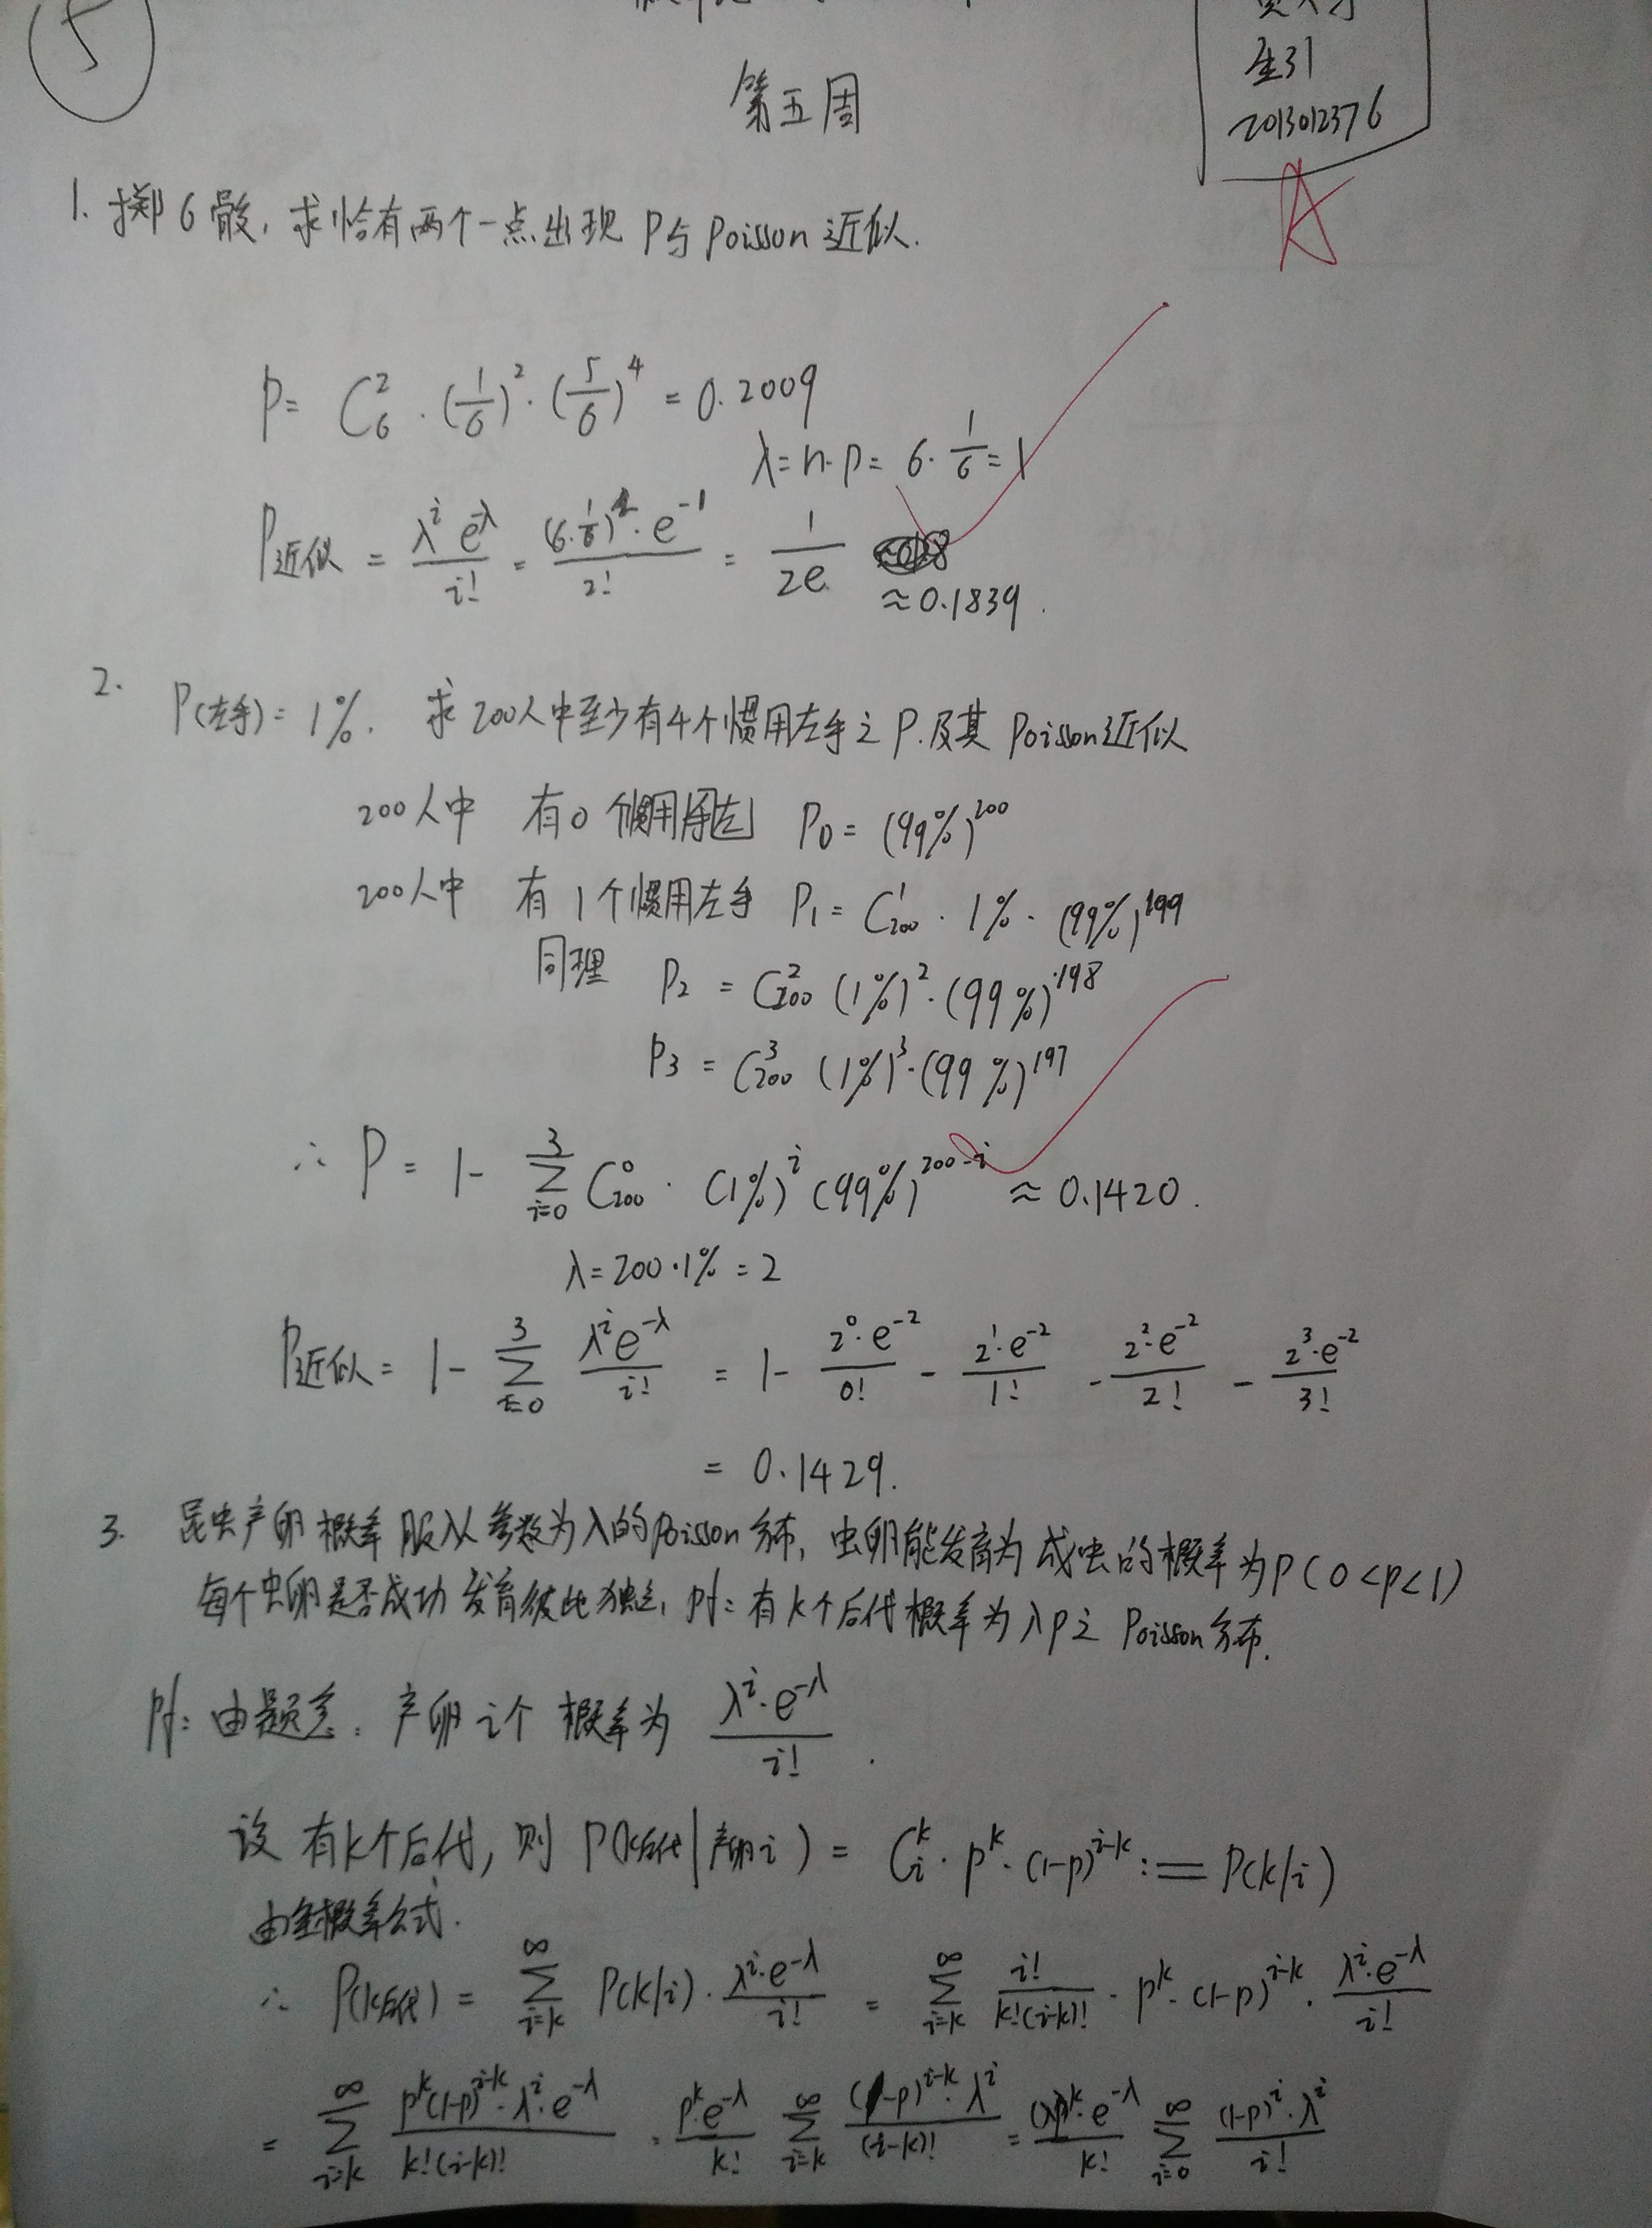 5
第五周
生31
2013012376
A
1. 掷6骰,求恰有两个一点出现 P与Poisson近似.
P= C₆² · (1/6)² · (5/6)⁴ = 0.2009
λ=n·p= 6·1/6=1
P近似 = λ^i e^-λ / i! = (6·1/6)² · e^-1 / 2! = 1/2e
≈0.1839.
2. P(左手)= 1%. 求200人中至少有4个惯用左手之P.及其Poisson近似
200人中 有0个惯用左 P₀= (99%)^200
200人中 有1个惯用左手 P₁= C₂₀₀¹ · 1% · (99%)^199
同理 P₂ = C₂₀₀² (1%)² · (99%)^198
P₃ = C₂₀₀³ (1%)³ · (99%)^197
∴ P = 1- Σ_{i=0}^{3} C₂₀₀⁰ · (1%)^i (99%)^{200-i} ≈ 0.1420.
λ=200·1% = 2
P近似= 1- Σ_{i=0}^{3} λ^i e^-λ / i! = 1- 2⁰·e^-2 / 0! - 2¹·e^-2 / 1! - 2²·e^-2 / 2! - 2³·e^-2 / 3!
= 0.1429.
3. 昆虫产卵概率服从参数为λ的Poisson分布, 虫卵能发育为成虫的概率为P(0<p<1)
每个虫卵是否成功发育彼此独立, pf: 有k个后代概率为λp之Poisson分布.
pf: 由题意: 产卵i个 概率为 λ^i·e^-λ / i! .
设有k个后代, 则 P(k后代|产卵i) = C_i^k · p^k · (1-p)^{i-k} := P(k|i)
由全概率公式.
∴ P(k后代) = Σ_{i=k}^{∞} P(k|i) · λ^i·e^-λ / i! = Σ_{i=k}^{∞} i! / k!(i-k)! · p^k · (1-p)^{i-k} · λ^i·e^-λ / i!
= Σ_{i=k}^{∞} p^k(1-p)^{i-k}·λ^i·e^-λ / k!(i-k)! = p^k·e^-λ / k! Σ_{i=k}^{∞} (1-p)^{i-k}·λ^i / (i-k)! = (λp)^k·e^-λ / k! Σ_{i=0}^{∞} (1-p)^i·λ^i / i!